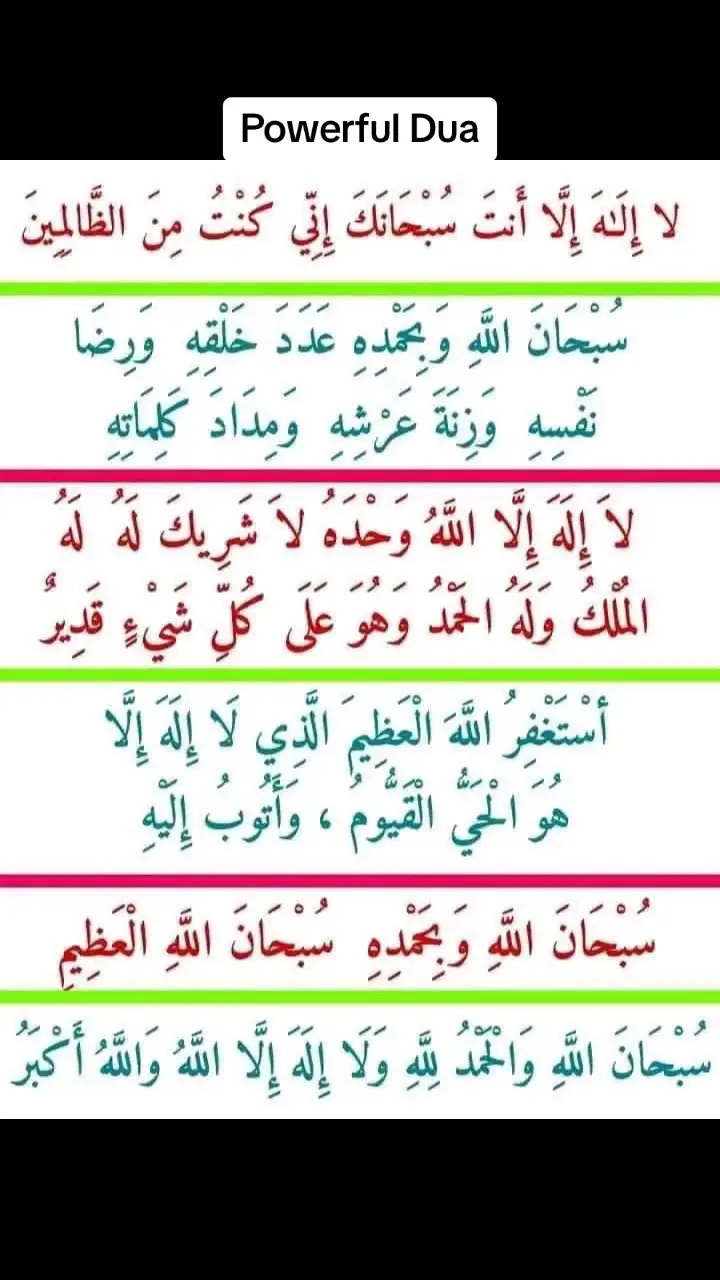 Powerful Dua
لا إِلَـٰهَ إِلَّا أَنتَ سُبْحَانَكَ إِنِّي كُنْتُ مِنَ الظَّالِمِينَ
سُبْحَانَ اللَّهِ وَبِحَمْدِهِ عَدَدَ خَلْقِهِ وَرِضَا
نَفْسِهِ وَزِنَةَ عَرْشِهِ وَمِدَادَ كَلِمَاتِهِ
لاَ إِلَهَ إِلَّا اللَّهُ وَحْدَهُ لاَ شَرِيكَ لَهُ لَهُ
الْمُلْكُ وَلَهُ الْحَمْدُ وَهُوَ عَلَى كُلِّ شَيْءٍ قَدِيرٌ
أسْتَغْفِرُ اللَّهَ الْعَظِيمَ الَّذِي لَا إِلَهَ إِلَّا
هُوَ الْحَيُّ الْقَيُّومُ ، وَأَتُوبُ إِلَيْهِ
سُبْحَانَ اللَّهِ وَبِحَمْدِهِ سُبْحَانَ اللَّهِ الْعَظِيمِ
سُبْحَانَ اللَّهِ وَالْحَمْدُ لِلَّهِ وَلَا إِلَهَ إِلَّا اللَّهُ وَاللَّهُ أَكْبَرُ